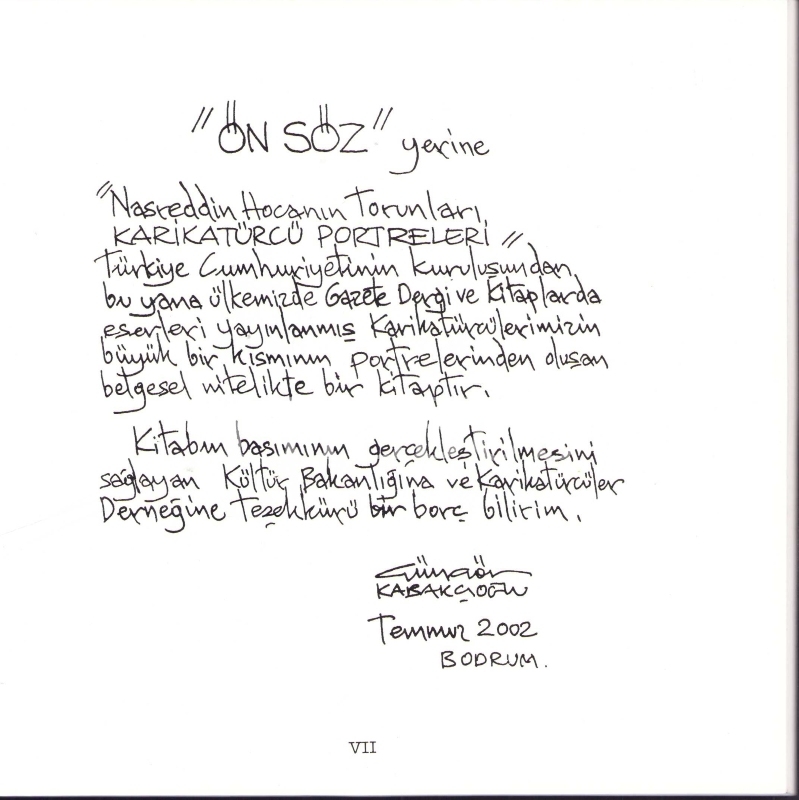 "ÖN SÖZ" yerine
"Nasreddin Hocanın Torunları,
KARİKATÜRCÜ PORTRELERİ"
Türkiye Cumhuriyetinin kuruluşundan,
bu yana ülkemizde Gazete Dergi ve Kitaplarda
eserleri yayınlanmış Karikatürcülerimizin
büyük bir kısmının portrelerinden oluşan
belgesel nitelikte bir kitaptır.
Kitabın basımının gerçekleştirilmesini
sağlayan Kültür Bakanlığına ve Karikatürcüler
Derneğine Teşekkürü bir borç bilirim.
Güngör
KABAKÇIOĞLU
Temmuz 2002
BODRUM.
VII